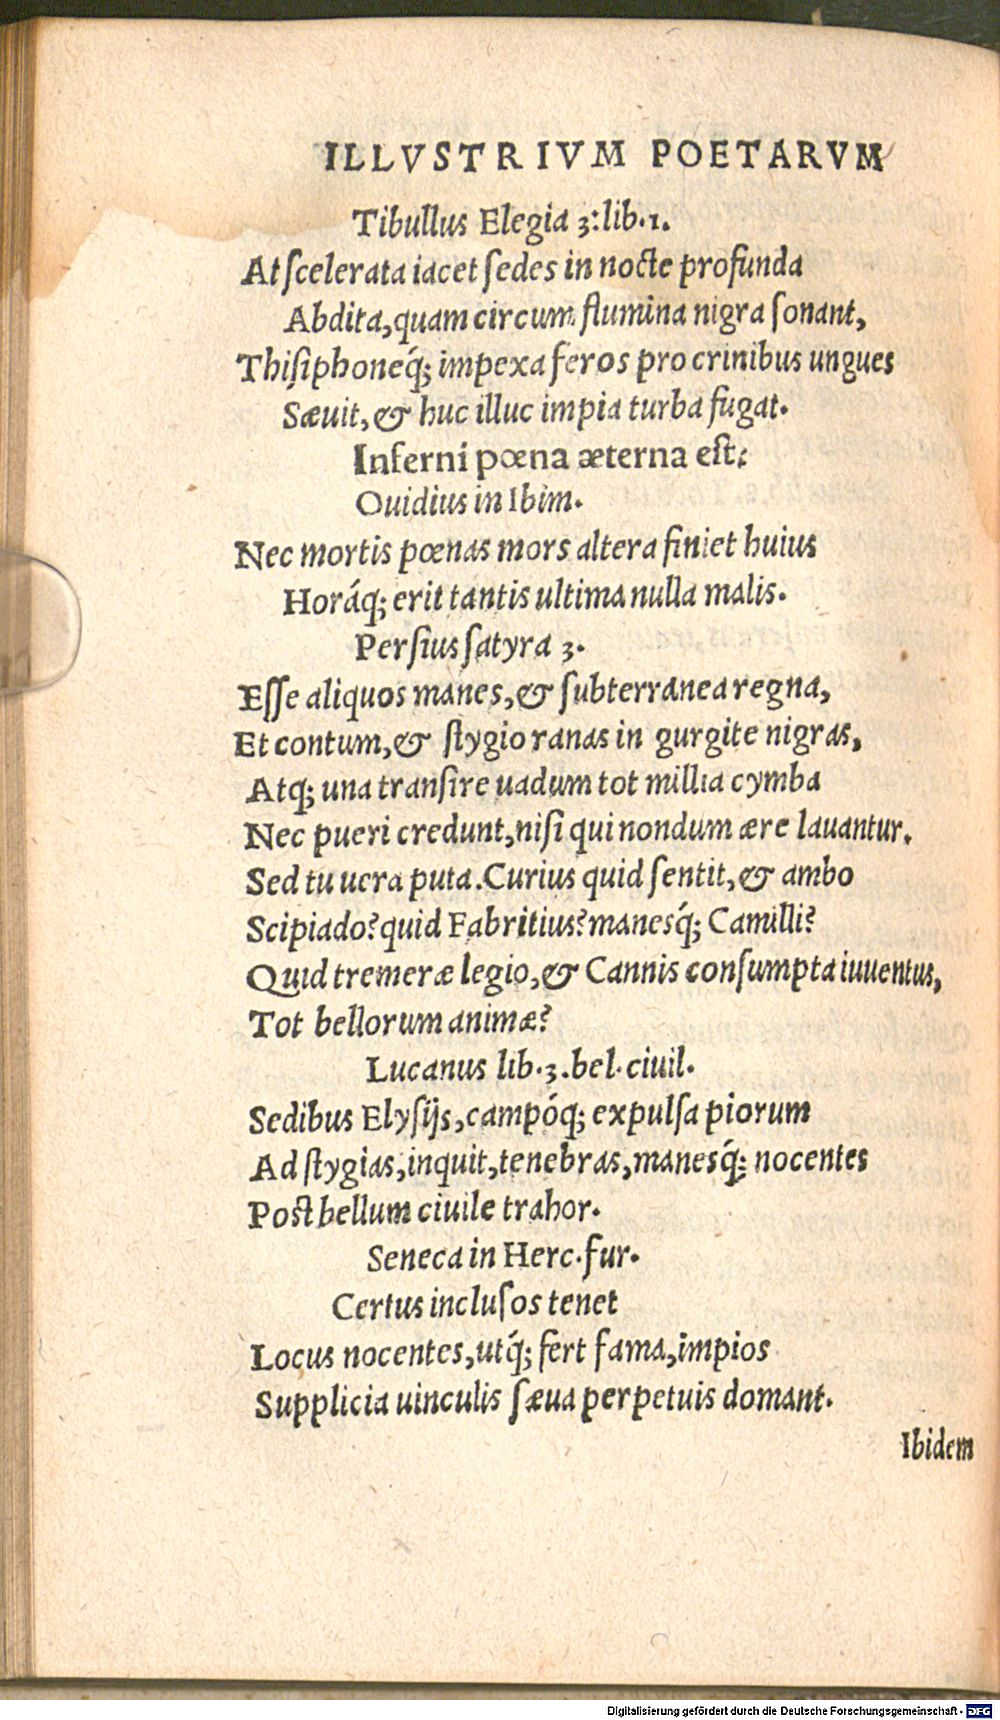 ILLVSTRIVM POETARVM
Tibullus Elegia 3:lib.1.
At ſcelerata iacet ſedes in nocte profunda
Abdita,quam circum flumina nigra ſonant,
Thiſiphoneq́; impexa feros pro crinibus ungues
Sæuit,& huc illuc impia turba fugat.
Inferni pœna æterna eſt:
Ouidius in Ibim.
Nec mortis pœnas mors altera finiet huius
Horáq; erit tantis ultima nulla malis.
Perſius ſatyra 3.
Eſſe aliquos manes,& ſubterranea regna,
Et contum,& ſtygio ranas in gurgite nigras,
Atq; una tranſire uadum tot millia cymba
Nec pueri credunt,niſi qui nondum ære lauantur.
Sed tu uera puta.Curius quid ſentit,& ambo
Scipiado?quid Fabritius?manesq́; Camilli?
Quid tremeræ legio,& Cannis conſumpta iuuentus,
Tot bellorum animæ?
Lucanus lib.3.bel.ciuil.
Sedibus Elyſijs,campóq; expulſa piorum
Ad ſtygias,inquit,tenebras,manesq́; nocentes
Poſt bellum ciuile trahor.
Seneca in Herc.fur.
Certus incluſos tenet
Locus nocentes,utq́; fert fama,impios
Supplicia uinculis ſæua perpetuis domant.
Ibidem
Digitalisierung gefördert durch die Deutsche Forschungsgemeinschaft - DFG